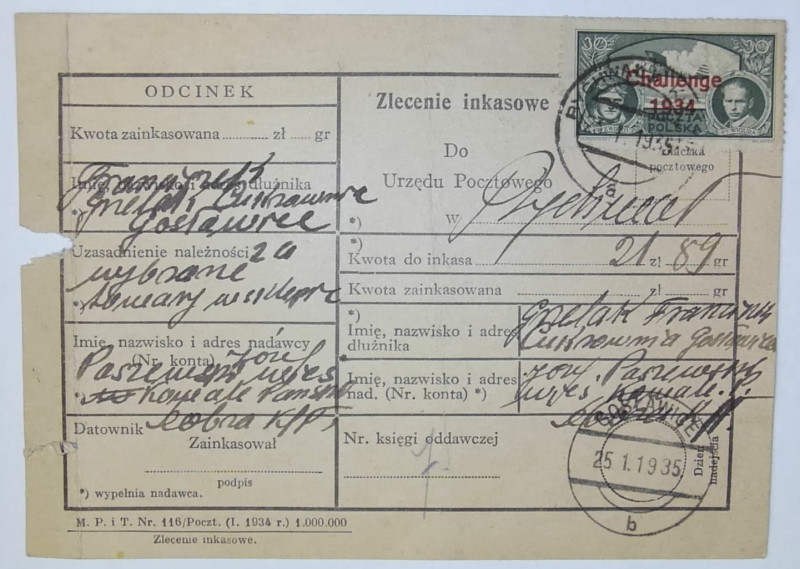 ODCINEK
Kwota zainkasowana ........... zł ...... gr
Franciszek
Imię, nazwisko i adres dłużnika
Grelak Cukrownia
*) Gosławice
Uzasadnienie należności za
wybrane
*) towary w sklepie
Imię, nazwisko i adres nadawcy
(Nr. konta) Józef
wieś
Kowale Pańskie
K/P,
Datownik Zainkasował
podpis
*) wypełnia nadawca.
M. P. i T. Nr. 116/Poczt. (I. 1934 r.) 1.000.000
Zlecenie inkasowe.
Zlecenie inkasowe
Do
Urzędu Pocztowego
*) w
*)
Kwota do inkasa 21 zł 89 gr
Kwota zainkasowana ........... zł ...... gr
*) Grelak Francisz
Imię, nazwisko i adres
dłużnika Cukrownia Gosławice
Józef
Imię, nazwisko i adres
nad. (Nr. konta) *) wieś Kowale
Nr. księgi oddawczej
Dzień nadejścia
30 30
Challenge
1934
POCZTA
POLSKA
znaczka
pocztowego
1935
a
GOSŁAWICE
25 1.1935
b